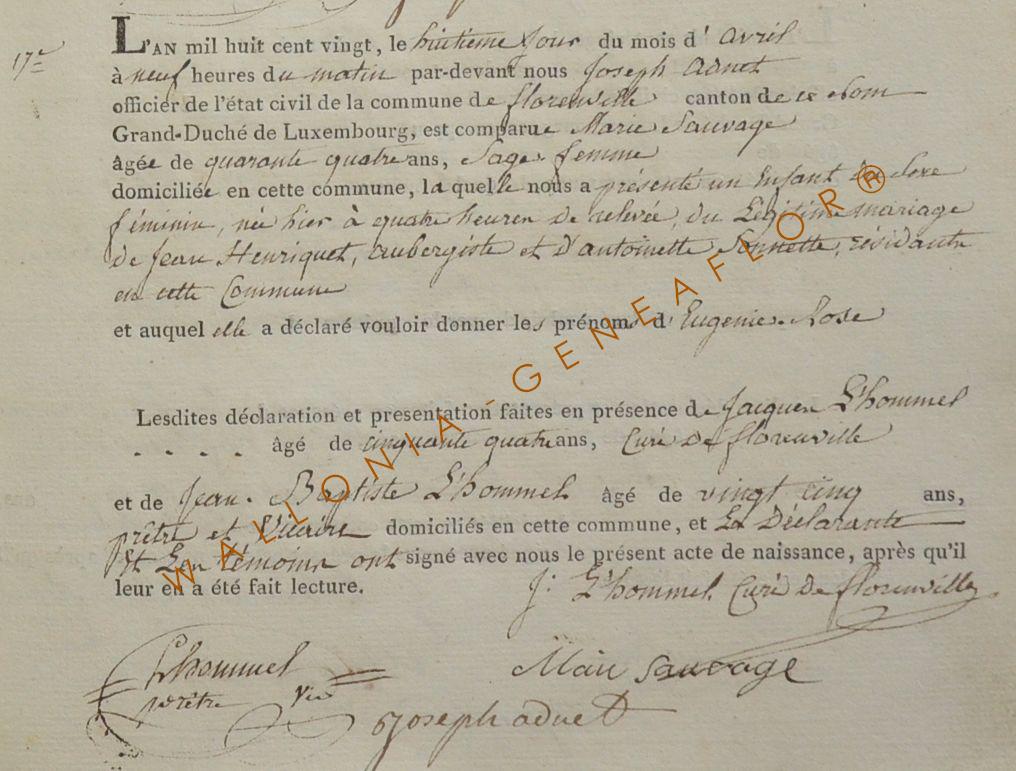 17e
L'AN mil huit cent vingt, le huitieme jour du mois d' avril
à neuf heures du matin par-devant nous Joseph Adnet
officier de l'état civil de la commune de florenville canton de ce Nom
Grand-Duché de Luxembourg, est comparue Marie Sauvage
âgée de quarante quatre ans, Sage-femme
domiciliée en cette commune, la quelle nous a présenté un Enfant du Sexe
féminin, née hier à quatre heures de relevée, du Légitime mariage
de Jean Henriquet, aubergiste et d'antoinette résidante
en cette Commune
et auquel elle a déclaré vouloir donner les prénoms d' Eugenie-Rose
Lesdites déclaration et presentation faites en présence de Jacques L'hommel
. . . . âgé de cinquante quatre ans, Curé de florenville
et de Jean-Baptiste L'hommel âgé de vingt cinq ans,
prêtre et Vicaire domiciliés en cette commune, et La Déclarante
Et Les témoins ont signé avec nous le présent acte de naissance, après qu'il
leur en a été fait lecture.
J: L'hommel Curé de florenville
L'hommel
prêtre Vic
Marie Sauvage
Joseph adnet
WALLONIA-GENEAFLOR®